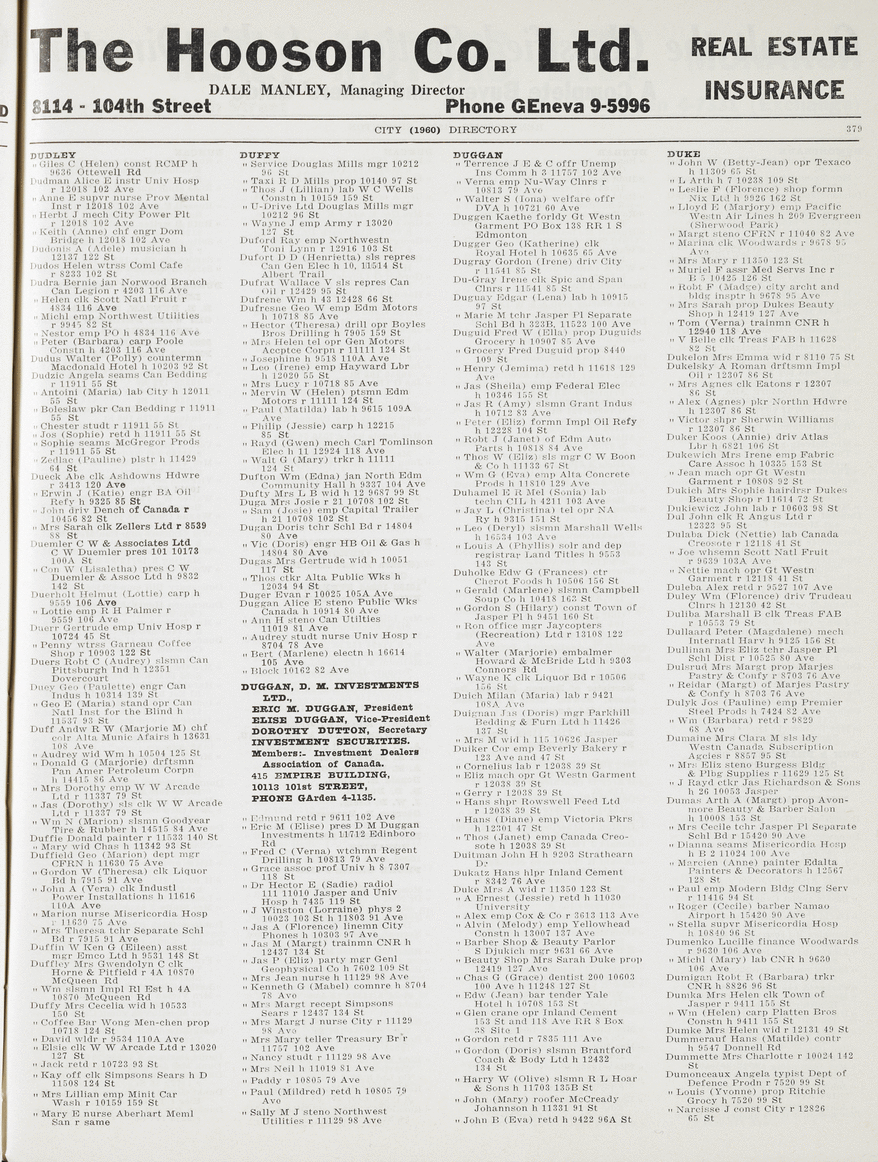 The Hooson Co. Ltd.
REAL ESTATE
INSURANCE
DALE MANLEY, Managing Director
8114 - 104th Street
Phone GEneva 9-5996
CITY (1960) DIRECTORY
379
DUDLEY
" Giles C (Helen) const RCMP h
9636 Ottewell Rd
Dudman Alice E instr Univ Hosp
r 12018 102 Ave
" Anne E supvr nurse Prov Mental
Inst r 12018 102 Ave
" Herbt J mech City Power Plt
r 12018 102 Ave
" Keith (Anne) chf engr Dom
Bridge h 12018 102 Ave
Dudonis A (Adele) musician h
12137 122 St
Dudos Helen wtrss Coml Cafe
r 8233 102 St
Dudra Bernie jan Norwood Branch
Can Legion r 4203 116 Ave
" Helen clk Scott Natl Fruit r
4834 116 Ave
" Michl emp Northwest Utilities
r 9945 82 St
" Nestor emp PO h 4834 116 Ave
" Peter (Barbara) carp Poole
Constn h 4203 116 Ave
Dudus Walter (Polly) countermn
Macdonald Hotel h 10203 92 St
Dudzic Angela seams Can Bedding
r 11911 55 St
" Antoini (Maria) lab City h 12011
55 St
" Boleslaw pkr Can Bedding r 11911
55 St
" Chester studt r 11911 55 St
" Jos (Sophie) retd h 11911 55 St
" Sophie seams McGregor Prods
r 11911 55 St
" Zedlac (Pauline) plstr h 11429
64 St
Dueck Abe clk Ashdowns Hdwre
r 3413 120 Ave
" Erwin J (Katie) engr BA Oil
Refy h 9325 85 St
" John driv Dench of Canada r
10456 82 St
" Mrs Sarah clk Zellers Ltd r 8539
88 St
Duemler C W & Associates Ltd
C W Duemler pres 101 10173
100A St
" Con W (Lisaletha) pres C W
Duemler & Assoc Ltd h 9832
142 St
Duerholt Helmut (Lottie) carp h
9559 106 Ave
" Lottie emp R H Palmer r
9559 106 Ave
Duerr Gertrude emp Univ Hosp r
10724 45 St
" Penny wtrss Garneau Coffee
Shop r 10903 122 St
Duers Robt C (Audrey) slsmn Can
Pittsburgh Ind h 12351
Dovercourt
Duey Geo (Paulette) engr Can
Indus h 10314 139 St
" Geo E (Maria) stand opr Can
Natl Inst for the Blind h
11537 93 St
Duff Andw R W (Marjorie M) chf
colr Alta Munic Afairs h 13631
108 Ave
" Audrey wid Wm h 10504 125 St
" Donald G (Marjorie) drftsmn
Pan Amer Petroleum Corpn
h 14415 86 Ave
" Mrs Dorothy emp W W Arcade
Ltd r 11337 79 St
" Jas (Dorothy) sls clk W W Arcade
Ltd r 11337 79 St
" Wm N (Marion) slsmn Goodyear
Tire & Rubber h 14515 84 Ave
Duffie Donald painter r 11533 140 St
" Mary wid Chas h 11342 93 St
Duffield Geo (Marion) dept mgr
CFRN h 11630 75 Ave
" Gordon W (Theresa) clk Liquor
Bd h 7915 91 Ave
" John A (Vera) clk Industl
Power Installations h 11616
110A Ave
" Marion nurse Misericordia Hosp
r 11630 75 Ave
" Mrs Theresa tchr Separate Schl
Bd r 7915 91 Ave
Duffin W Ken G (Eileen) asst
mgr Emco Ltd h 9531 148 St
Duffley Mrs Gwendolyn C clk
Horne & Pitfield r 4A 10870
McQueen Rd
" Wm slsmn Impl Rl Est h 4A
10870 McQueen Rd
Duffy Mrs Cecelia wid h 10533
150 St
" Coffee Bar Wong Men-chen prop
10718 124 St
" David wldr r 9534 110A Ave
" Elsie clk W W Arcade Ltd r 13020
127 St
" Jack retd r 10723 93 St
" Kay off clk Simpsons Sears h D
11508 124 St
" Mrs Lillian emp Minit Car
Wash r 10159 159 St
" Mary E nurse Aberhart Meml
San r same
DUFFY
" Service Douglas Mills mgr 10212
96 St
" Taxi R D Mills prop 10140 97 St
" Thos J (Lillian) lab W C Wells
Constn h 10159 159 St
" U-Drive Ltd Douglas Mills mgr
10212 96 St
" Wayne J emp Army r 13020
127 St
Duford Ray emp Northwestn
Toni Lynn r 12916 103 St
Dufort D D (Henrietta) sls repres
Can Gen Elec h 10, 11514 St
Albert Trail
Dufrat Wallace V sls repres Can
Oil r 12429 95 St
Dufrene Wm h 43 12428 66 St
Dufresne Geo W emp Edm Motors
h 10718 85 Ave
" Hector (Theresa) drill opr Boyles
Bros Drilling h 7905 159 St
" Mrs Helen tel opr Gen Motors
Accptce Corpn r 11111 124 St
" Josephine h 9518 110A Ave
" Leo (Irene) emp Hayward Lbr
h 12020 55 St
" Mrs Lucy r 10718 85 Ave
" Mervin W (Helen) ptsmn Edm
Motors r 11111 124 St
" Paul (Matilda) lab h 9615 109A
Ave
" Philip (Jessie) carp h 12215
85 St
" Rayd (Gwen) mech Carl Tomlinson
Elec h 11 12924 118 Ave
" Walt G (Mary) trkr h 11111
124 St
Dufton Wm (Edna) jan North Edm
Community Hall h 9337 104 Ave
Dufty Mrs L B wid h 12 9687 99 St
Duga Mrs Josie r 21 10708 102 St
" Sam (Josie) emp Capital Trailer
h 21 10708 102 St
Dugan Doris tchr Schl Bd r 14804
80 Ave
" Vic (Doris) engr HB Oil & Gas h
14804 80 Ave
Dugas Mrs Gertrude wid h 10051
117 St
" Thos ctkr Alta Public Wks h
12034 94 St
Duger Evan r 10025 105A Ave
Duggan Alice E steno Public Wks
Canada h 10914 80 Ave
" Ann H steno Can Utilties
11019 81 Ave
" Audrey studt nurse Univ Hosp r
8704 78 Ave
" Bert (Marlene) electn h 16614
105 Ave
" Block 10162 82 Ave
DUGGAN, D. M. INVESTMENTS
LTD.,
ERIC M. DUGGAN, President
ELISE DUGGAN, Vice-President
DOROTHY DUTTON, Secretary
INVESTMENT SECURITIES.
Members:- Investment Dealers
Association of Canada.
415 EMPIRE BUILDING,
10113 101st STREET,
PHONE GArden 4-1135.
" Edmund retd r 9611 102 Ave
" Eric M (Elise) pres D M Duggan
Investments h 11712 Edinboro
Rd
" Fred C (Verna) wtchmn Regent
Drilling h 10813 79 Ave
" Grace assoc prof Univ h 8 7307
118 St
" Dr Hector E (Sadie) radiol
111 11010 Jasper and Univ
Hosp h 7435 119 St
" J Winston (Lorraine) phys 2
10023 103 St h 11803 91 Ave
" Jas A (Florence) linemn City
Phones h 10303 97 Ave
" Jas M (Margt) trainmn CNR h
12437 134 St
" Jas P (Eliz) party mgr Genl
Geophysical Co h 7602 109 St
" Mrs Jean nurse h 11129 98 Ave
" Kenneth G (Mabel) comnre h 8704
78 Ave
" Mrs Margt recept Simpsons
Sears r 12437 134 St
" Mrs Margt J nurse City r 11129
98 Ave
" Mrs Mary teller Treasury Br r
11757 102 Ave
" Nancy studt r 11129 98 Ave
" Mrs Neil h 11019 81 Ave
" Paddy r 10805 79 Ave
" Paul (Mildred) retd h 10805 79
Ave
" Sally M J steno Northwest
Utilities r 11129 98 Ave
DUGGAN
" Terrence J E & C offr Unemp
Ins Comm h 3 11757 102 Ave
" Verna emp Nu-Way Clnrs r
10813 79 Ave
" Walter S (Iona) welfare offr
DVA h 10721 60 Ave
Duggen Kaethe forldy Gt Westn
Garment PO Box 138 RR 1 S
Edmonton
Dugger Geo (Katherine) clk
Royal Hotel h 10635 65 Ave
Dugray Gordon (Irene) driv City
r 11541 85 St
Du-Gray Irene clk Spic and Span
Clnrs r 11541 85 St
Duguay Edgar (Lena) lab h 10915
97 St
" Marie M tchr Jasper Pl Separate
Schl Bd h 323B, 11523 100 Ave
Duguid Fred W (Ella) prop Duguids
Grocery h 10907 85 Ave
" Grocery Fred Duguid prop 8440
109 St
" Henry (Jemima) retd h 11618 129
Ave
" Jas (Sheila) emp Federal Elec
h 10346 155 St
" Jas R (Amy) slsmn Grant Indus
h 10712 83 Ave
" Peter (Eliz) formn Impl Oil Refy
h 12228 104 St
" Robt J (Janet) of Edm Auto
Parts h 10818 84 Ave
" Thos W (Eliz) sls mgr C W Boon
& Co h 11133 67 St
" Wm G (Eva) emp Alta Concrete
Prods h 11810 129 Ave
Duhamel E R Mel (Sonia) lab
techn CIL h 4211 102 Ave
" Jay L (Christina) tel opr NA
Ry h 9315 151 St
" Leo (Deryl) slsmn Marshall Wells
h 16534 103 Ave
" Louis A (Phyllis) solr and dep
registrar Land Titles h 9553
143 St
Duholke Edw G (Frances) ctr
Cherot Foods h 10506 156 St
" Gerald (Marlene) slsmn Campbell
Soup Co h 10418 163 St
" Gordon S (Hilary) const Town of
Jasper Pl h 9451 160 St
" Ron office mgr Jaycopters
(Recreation) Ltd r 13108 122
Ave
" Walter (Marjorie) embalmer
Howard & McBride Ltd h 9303
Connors Rd
" Wayne K clk Liquor Bd r 10506
156 St
Duich Milan (Maria) lab r 9421
108A Ave
Duignan Jas (Doris) mgr Parkhill
Bedding & Furn Ltd h 11426
137 St
" Mrs M wid h 115 10626 Jasper
Duiker Cor emp Beverly Bakery r
123 Ave and 47 St
" Cornelius lab r 12038 39 St
" Eliz mach opr Gt Westn Garment
r 12038 39 St
" Gerry r 12038 39 St
" Hans shpr Rowswell Feed Ltd
r 12038 39 St
" Hans (Diane) emp Victoria Pkrs
h 12301 47 St
" Thos (Janet) emp Canada Creo-
sote h 12038 39 St
Duitman John H h 9203 Strathearn
Dr
Dukatz Hans hlpr Inland Cement
r 8342 76 Ave
Duke Mrs A wid r 11350 123 St
" A Ernest (Jessie) retd h 11030
University
" Alex emp Cox & Co r 3613 113 Ave
" Alvin (Melody) emp Yellowhead
Constn h 13007 137 Ave
" Barber Shop & Beauty Parlor
S Djukich mgr 9631 66 Ave
" Beauty Shop Mrs Sarah Duke prop
12419 127 Ave
" Chas G (Grace) dentist 200 10603
100 Ave h 11248 127 St
" Edw (Jean) bar tender Yale
Hotel h 10708 153 St
" Glen crane opr Inland Cement
153 St and 118 Ave RR 8 Box
58 Site 1
" Gordon retd r 7835 111 Ave
" Gordon (Doris) slsmn Brantford
Coach & Body Ltd h 12432
134 St
" Harry W (Olive) slsmn R L Hoar
& Sons h 11703 135B St
" John (Mary) roofer McCready
Johannson h 11331 91 St
" John B (Eva) retd h 9422 96A St
DUKE
" John W (Betty-Jean) opr Texaco
h 11309 65 St
" L Arth h 7 10238 109 St
" Leslie F (Florence) shop formn
Nix Ltd h 9926 162 St
" Lloyd E (Marjory) emp Pacific
Westn Air Lines h 209 Evergreen
(Sherwood Park)
" Margt steno CFRN r 11040 82 Ave
" Marina clk Woodwards r 9678 95
Ave
" Mrs Mary r 11350 123 St
" Muriel F assr Med Servs Inc r
B 5 10425 126 St
" Robt F (Madge) city archt and
bldg insptr h 9678 95 Ave
" Mrs Sarah prop Dukes Beauty
Shop h 12419 127 Ave
" Tom (Verna) trainmn CNR h
12940 118 Ave
" V Belle clk Treas FAB h 11628
82 St
Dukelon Mrs Emma wid r 8110 75 St
Dukelsky A Roman drftsmn Impl
Oil r 12307 86 St
" Mrs Agnes clk Eatons r 12307
86 St
" Alex (Agnes) pkr Northn Hdwre
h 12307 86 St
" Victor shpr Sherwin Williams
r 12307 86 St
Duker Koos (Annie) driv Atlas
Lbr h 6821 106 St
Dukewich Mrs Irene emp Fabric
Care Assoc h 10335 153 St
" Jean mach opr Gt Westn
Garment r 10808 92 St
Dukich Mrs Sophie hairdrsr Dukes
Beauty Shop r 11614 72 St
Dukiewicz John lab r 10603 98 St
Dul John clk R Angus Ltd r
12323 95 St
Dulaba Dick (Nettie) lab Canada
Creosote r 12118 41 St
" Joe whsemn Scott Natl Fruit
r 9639 103A Ave
" Nettie mach opr Gt Westn
Garment r 12118 41 St
Duleba Alex retd r 9527 107 Ave
Duley Wm (Florence) driv Trudeau
Clnrs h 12130 42 St
Duliba Marshall B clk Treas FAB
r 10553 79 St
Dullaard Peter (Magdalene) mech
Internatl Harv h 9125 156 St
Dullinan Mrs Eliz tchr Jasper Pl
Schl Dist r 10525 80 Ave
Dulsrud Mrs Margt prop Marjes
Pastry & Confy r 8703 76 Ave
" Reidar (Margt) of Marjes Pastry
& Confy h 8703 76 Ave
Dulyk Jos (Pauline) emp Premier
Steel Prods h 7424 82 Ave
" Wm (Barbara) retd r 9829
68 Ave
Dumaine Mrs Clara M sls ldy
Westn Canada Subscription
Agcies r 8857 95 St
" Mrs Eliz steno Burgess Bldg
& Plbg Supplies r 11629 125 St
" J Rayd ctkr Jas Richardson & Sons
h 26 10053 Jasper
Dumas Arth A (Margt) prop Avon-
more Beauty & Barber Salon
h 10008 153 St
" Mrs Cecile tchr Jasper Pl Separate
Schl Bd r 15420 90 Ave
" Dianna seams Misericordia Hosp
h B 2 11024 100 Ave
" Marcien (Anne) painter Edalta
Painters & Decorators h 12567
128 St
" Paul emp Modern Bldg Clng Serv
r 11416 94 St
" Roger (Cecile) barber Namao
Airport h 15420 90 Ave
" Stella supvr Misericordia Hosp
h 10840 96 St
Dumenko Lucille finance Woodwards
r 9630 106 Ave
" Michl (Mary) lab CNR h 9630
106 Ave
Dumigan Robt R (Barbara) trkr
CNR h 8826 96 St
Dumka Mrs Helen clk Town of
Jasper r 9411 155 St
" Wm (Helen) carp Platten Bros
Constn h 9411 155 St
Dumke Mrs Helen wid r 12131 49 St
Dummerauf Hans (Matilde) contr
h 9547 Donnell Rd
Dummette Mrs Charlotte r 10024 142
St
Dumonceaux Angela typist Dept of
Defence Prodn r 7520 99 St
" Louis (Yvonne) prop Ritchie
Grocy h 7520 99 St
" Narcisse J const City r 12826
65 St